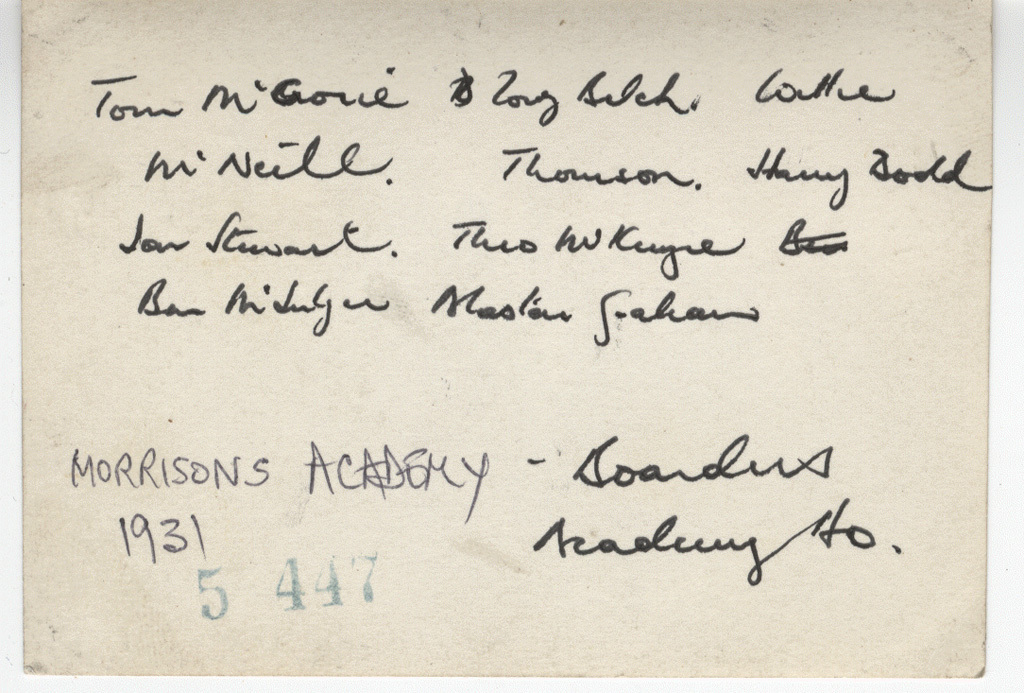 Tom McGorie Belch. Wattie
McNeill. Thomson. Harry Dodd
Ian Stewart. Theo McKenzie
Ben Alastair Graham
MORRISONS ACADEMY - Boarders
1931 Academy Ho.
5 447